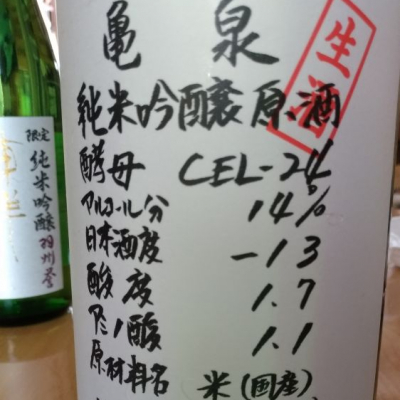 亀泉
生酒
純米吟醸原酒
酵母 CEL-24
アルコール分 14%
日本酒度 -13
酸度 1.7
アミノ酸 1.1
原材料名 米(国産)
限定
純米吟醸
羽州誉